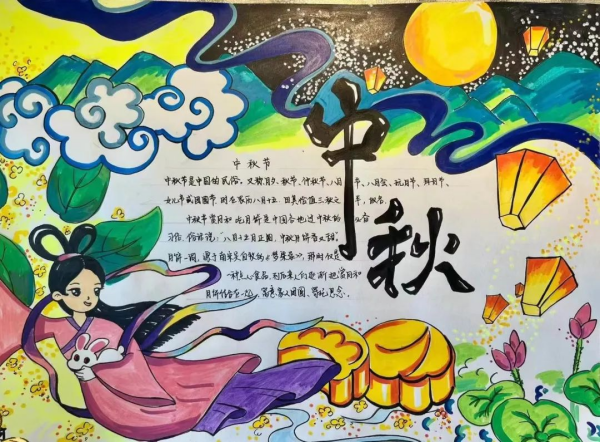 中秋
中秋节
中秋节是中国的民俗,又称月夕、秋节、仲秋节、八月节、八月会、玩月节、拜月节、
女儿节或团圆节,时在农历八月十五,因其恰值三秋之半,故名。
中秋节赏月和吃月饼是中国各地过中秋的必备
习俗,俗话说:八月十五月正圆,中秋月饼香又甜。
月饼一词,源于南宋吴自牧的《梦粱录》,那时仅是
一种点心食品,到后来人们逐渐把赏月和
月饼结合在一起,寓意家人团圆,寄托思念。